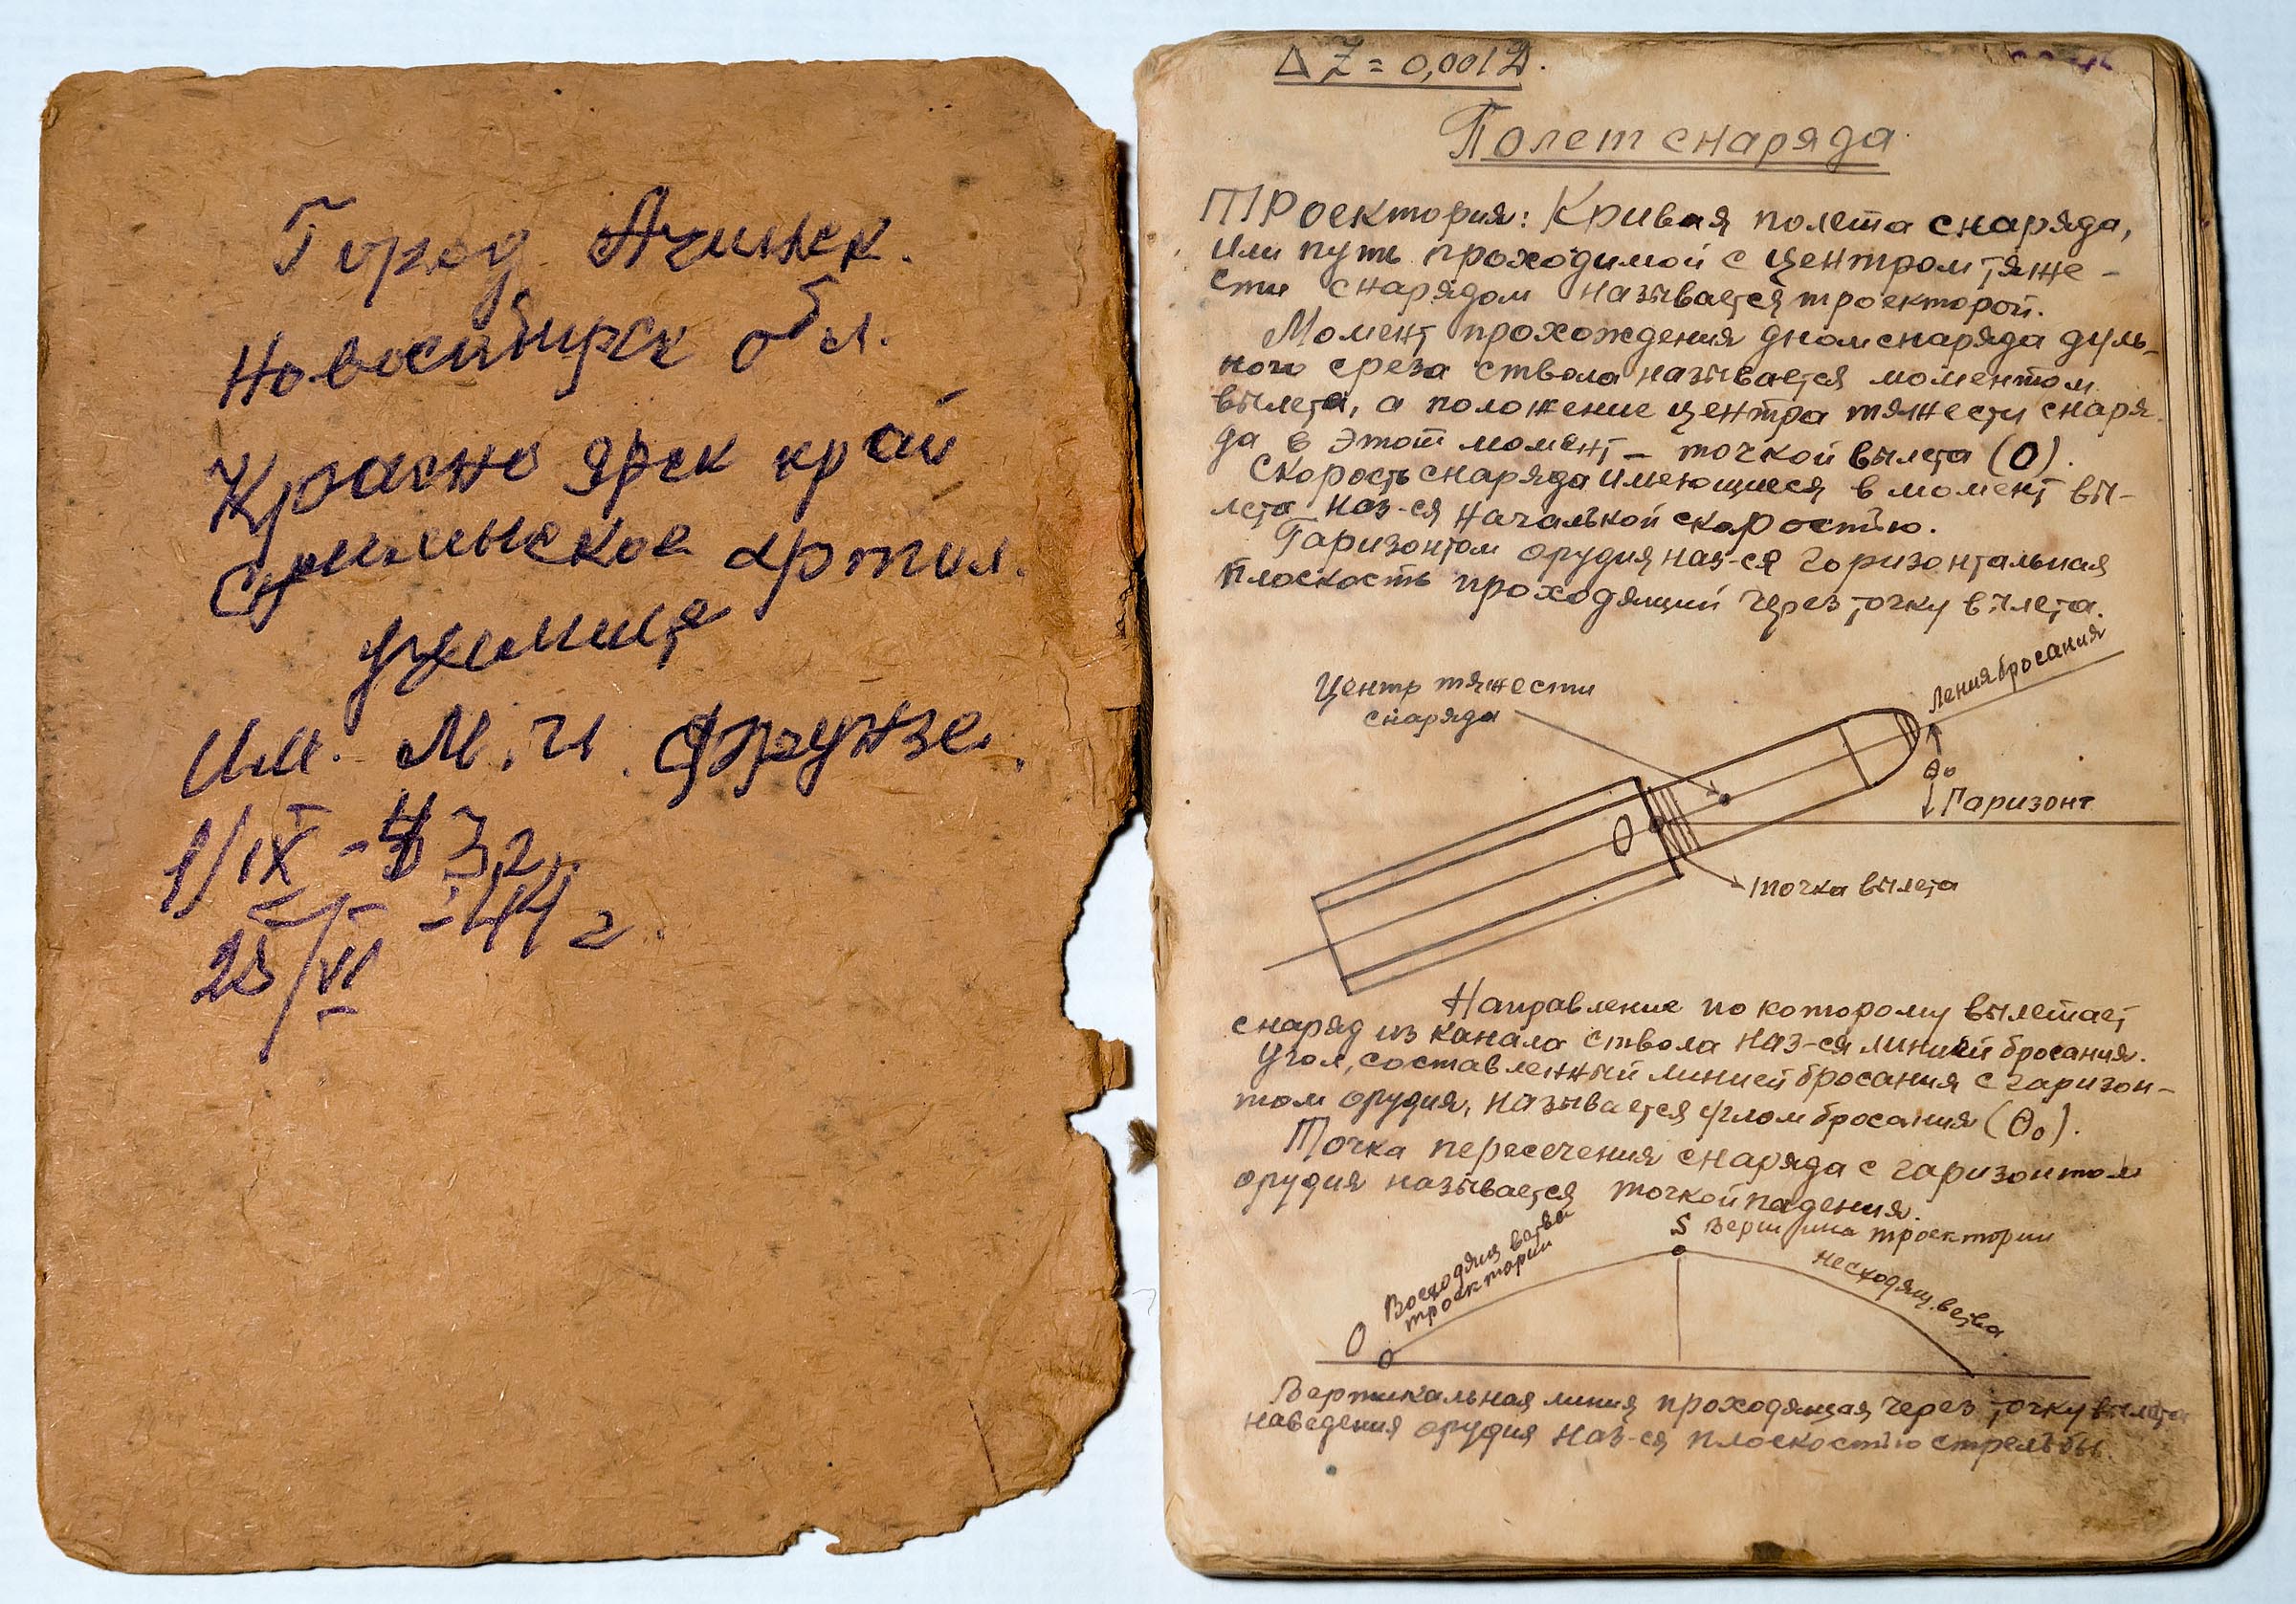 Город Ачинск.
Новосибирск обл.
Красно ярск край
Сумское артил.
училище
Им. М. И. Фрунзе.
1/IX - 43 г.
25/VI - 44 г.
Δ Z = 0,001 Д.
Полет снаряда
ТРоектория: Кривая полета снаряда,
или путь проходимой с центром тяже-
сти снарядом называется троекторой.
Момент прохождения дном снаряда дуль-
ного среза ствола называется моментом
вылета, а положение центра тяжести снаря
да в этот момент – точкой вылета (О).
Скорость снаряда имеющиеся в момент вы-
лета наз-ся начальной скоростью.
Гаризонтом орудия наз-ся горизонтальная
плоскость проходящий через точку вылета.
Центр тяжести
снаряда
Ления бросания
θ₀
Гаризонт
О
точка вылета
Направление по которому вылетает
снаряд из канала ствола наз-ся линией бросания.
Угол, составленный линией бросания с гаризон-
том орудия, называется углом бросания (θ₀).
Точка пересечения снаряда с гаризонтом
орудия называется точкой падения.
S Вершина троектории
Восходящ ветвь
троектории
Несходящ. ветва
О
Вертикальная линия проходящая через точку вылета
наведения орудия наз-ся плоскостью стрельбы.